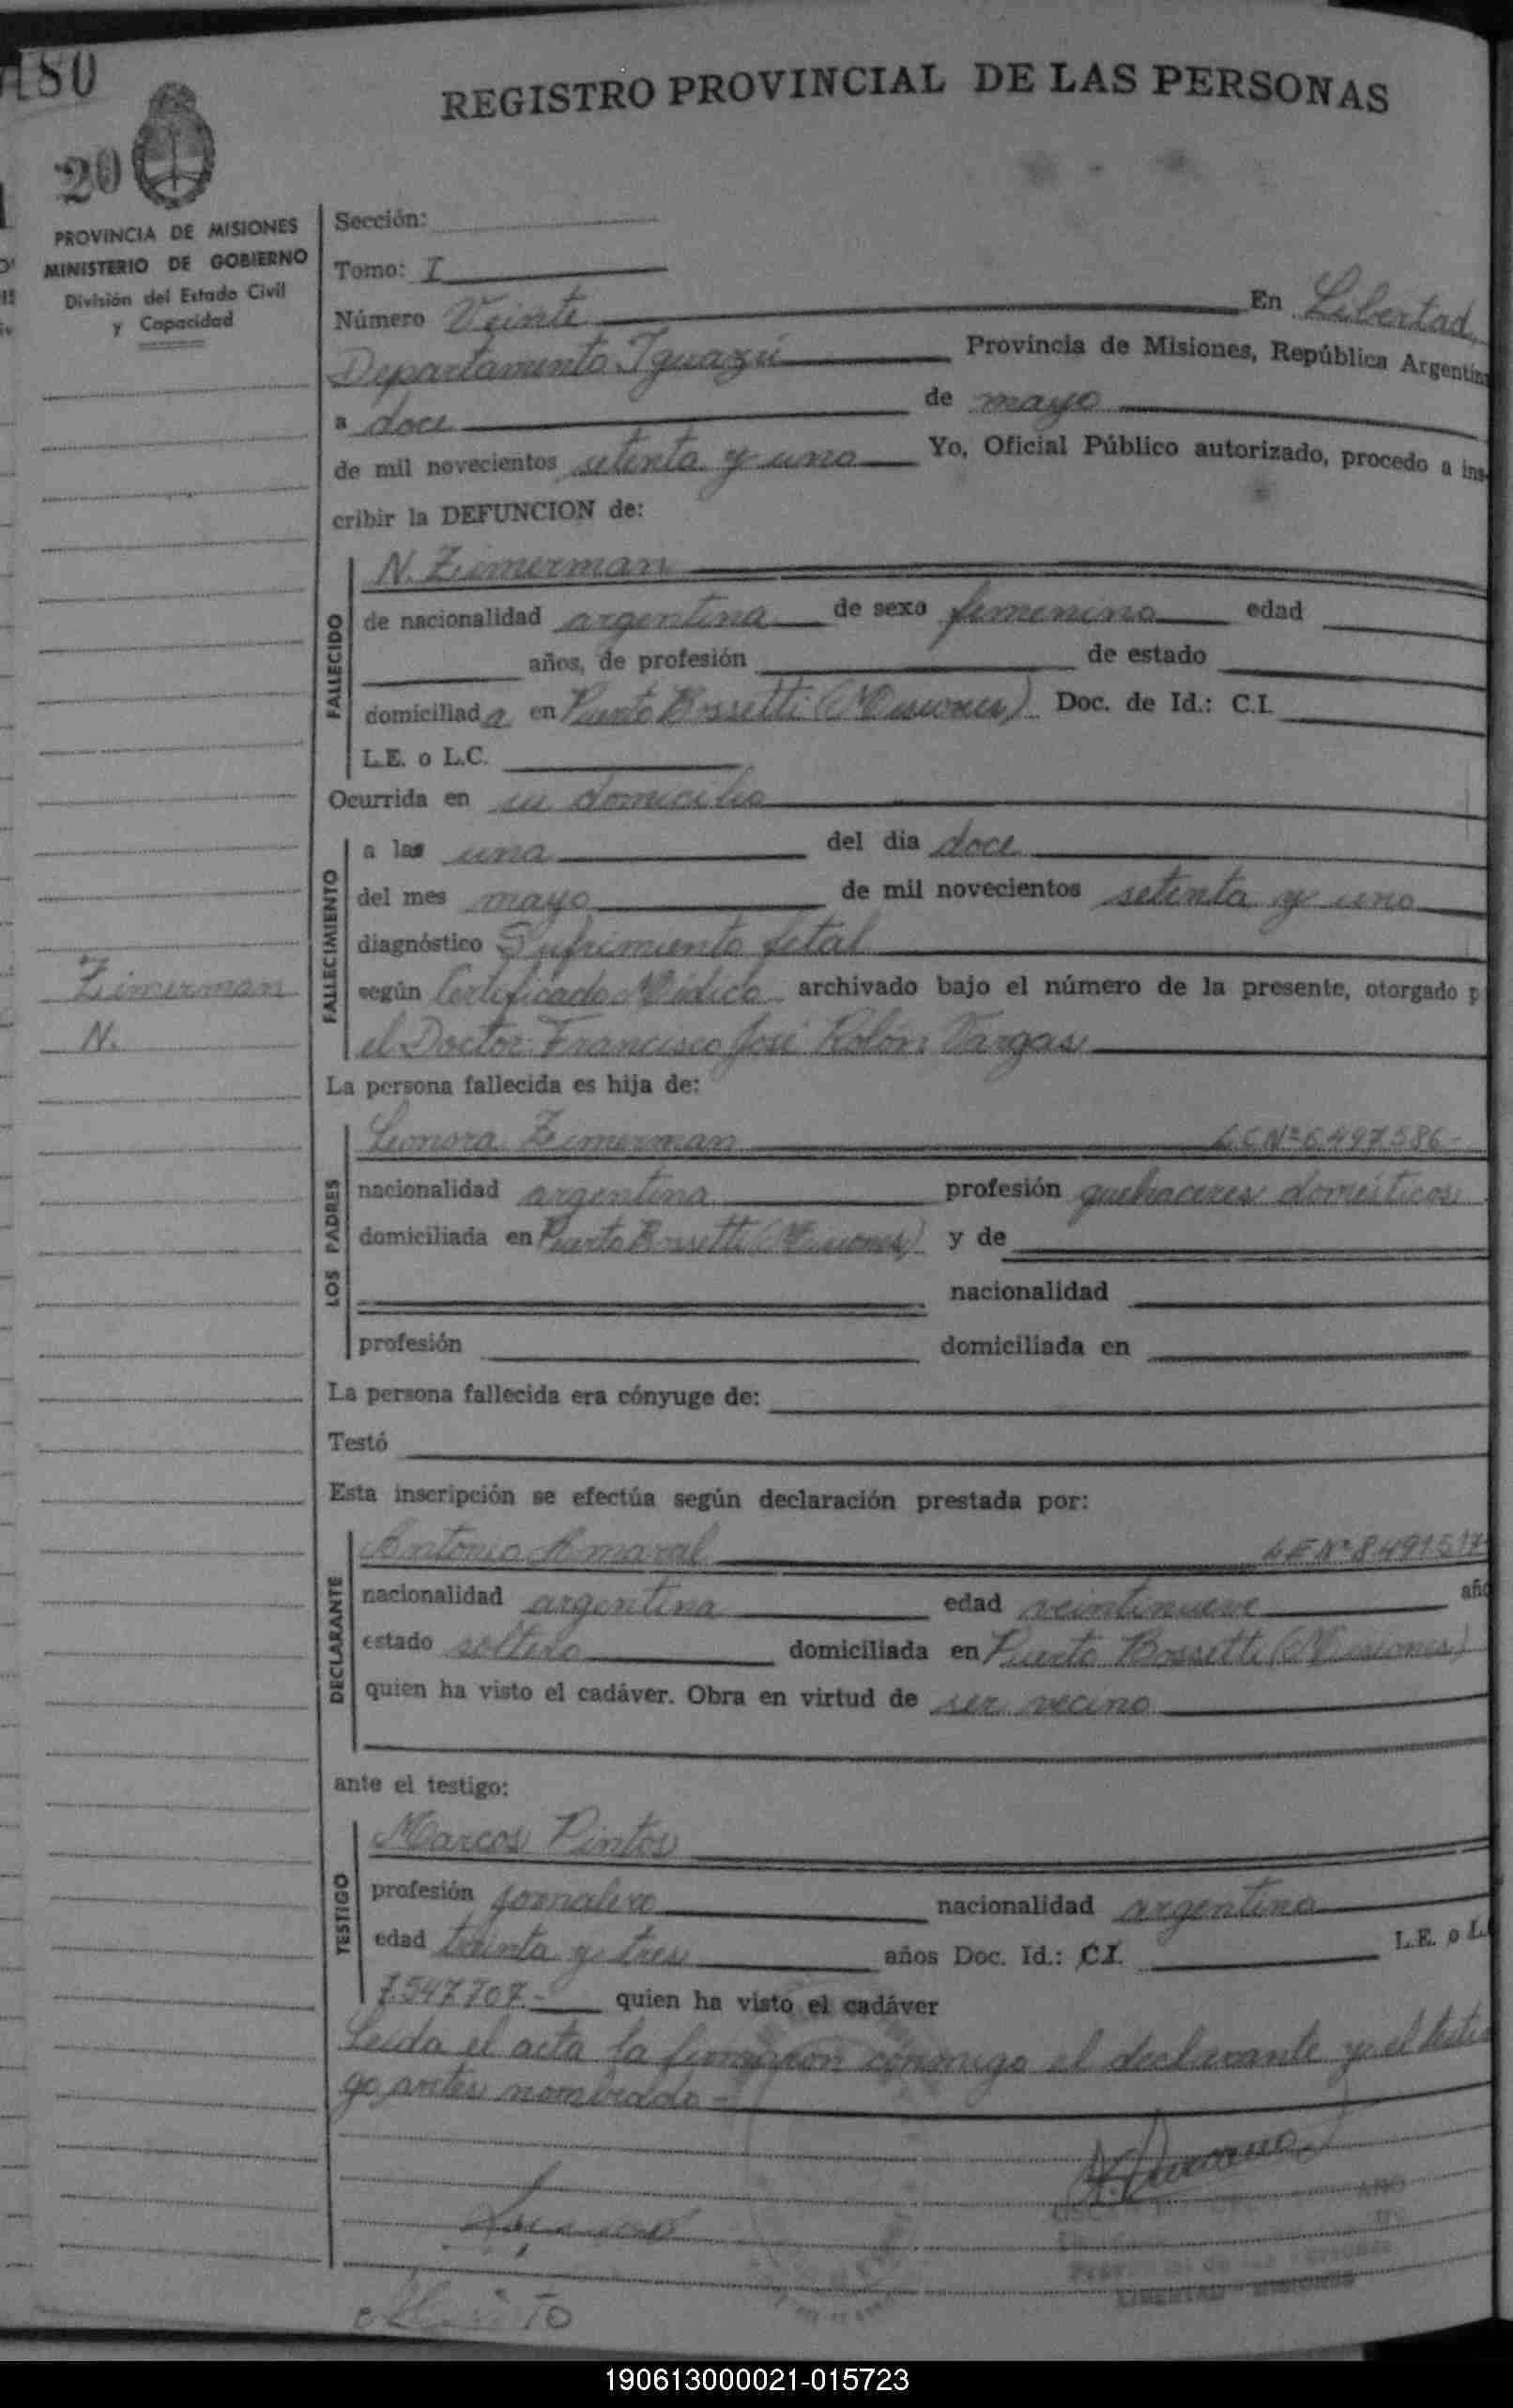 180
20
REGISTRO PROVINCIAL DE LAS PERSONAS
PROVINCIA DE MISIONES
MINISTERIO DE GOBIERNO
División del Estado Civil
y Capacidad
Sección:
Tomo: I
Número Veinte En Libertad,
Departamento Iguazú Provincia de Misiones, República Argentina
a doce de mayo
de mil novecientos setenta y uno Yo, Oficial Público autorizado, procedo a ins-
cribir la DEFUNCION de:
FALLECIDO
N. Zimerman
de nacionalidad argentina de sexo femenino edad
años, de profesión de estado
domiciliada en Puerto Bossetti (Misiones) Doc. de Id.: C.I.
L.E. o L.C.
Ocurrida en su domicilio
FALLECIMIENTO
a las una del dia doce
del mes mayo de mil novecientos setenta y uno
diagnóstico Sufrimiento fetal
según Certificado Médico archivado bajo el número de la presente, otorgado p
el Doctor Francisco José Rolón Vargas
Zimerman
N.
La persona fallecida es hija de:
LOS PADRES
Leonora Zimerman L.C.Nº 6.497.586-
nacionalidad argentina profesión quehaceres domésticos
domiciliada en Puerto Bossetti (Misiones) y de
nacionalidad
profesión domiciliada en
La persona fallecida era cónyuge de:
Testó
Esta inscripción se efectúa según declaración prestada por:
DECLARANTE
Antonio Amaral L.E.Nº 8.491.517
nacionalidad argentina edad veintinueve año
estado soltero domiciliada en Puerto Bossetti (Misiones)
quien ha visto el cadáver. Obra en virtud de ser vecino
ante el testigo:
TESTIGO
Marcos Pintos
profesión jornalero nacionalidad argentina
edad treinta y tres años Doc. Id.: C.I. L.E. o L.
7.547.707.- quien ha visto el cadáver
Leída el acta la firmaron conmigo el declarante y el testi-
go antes nombrado-
LIBERTAD - MISIONES
190613000021-015723